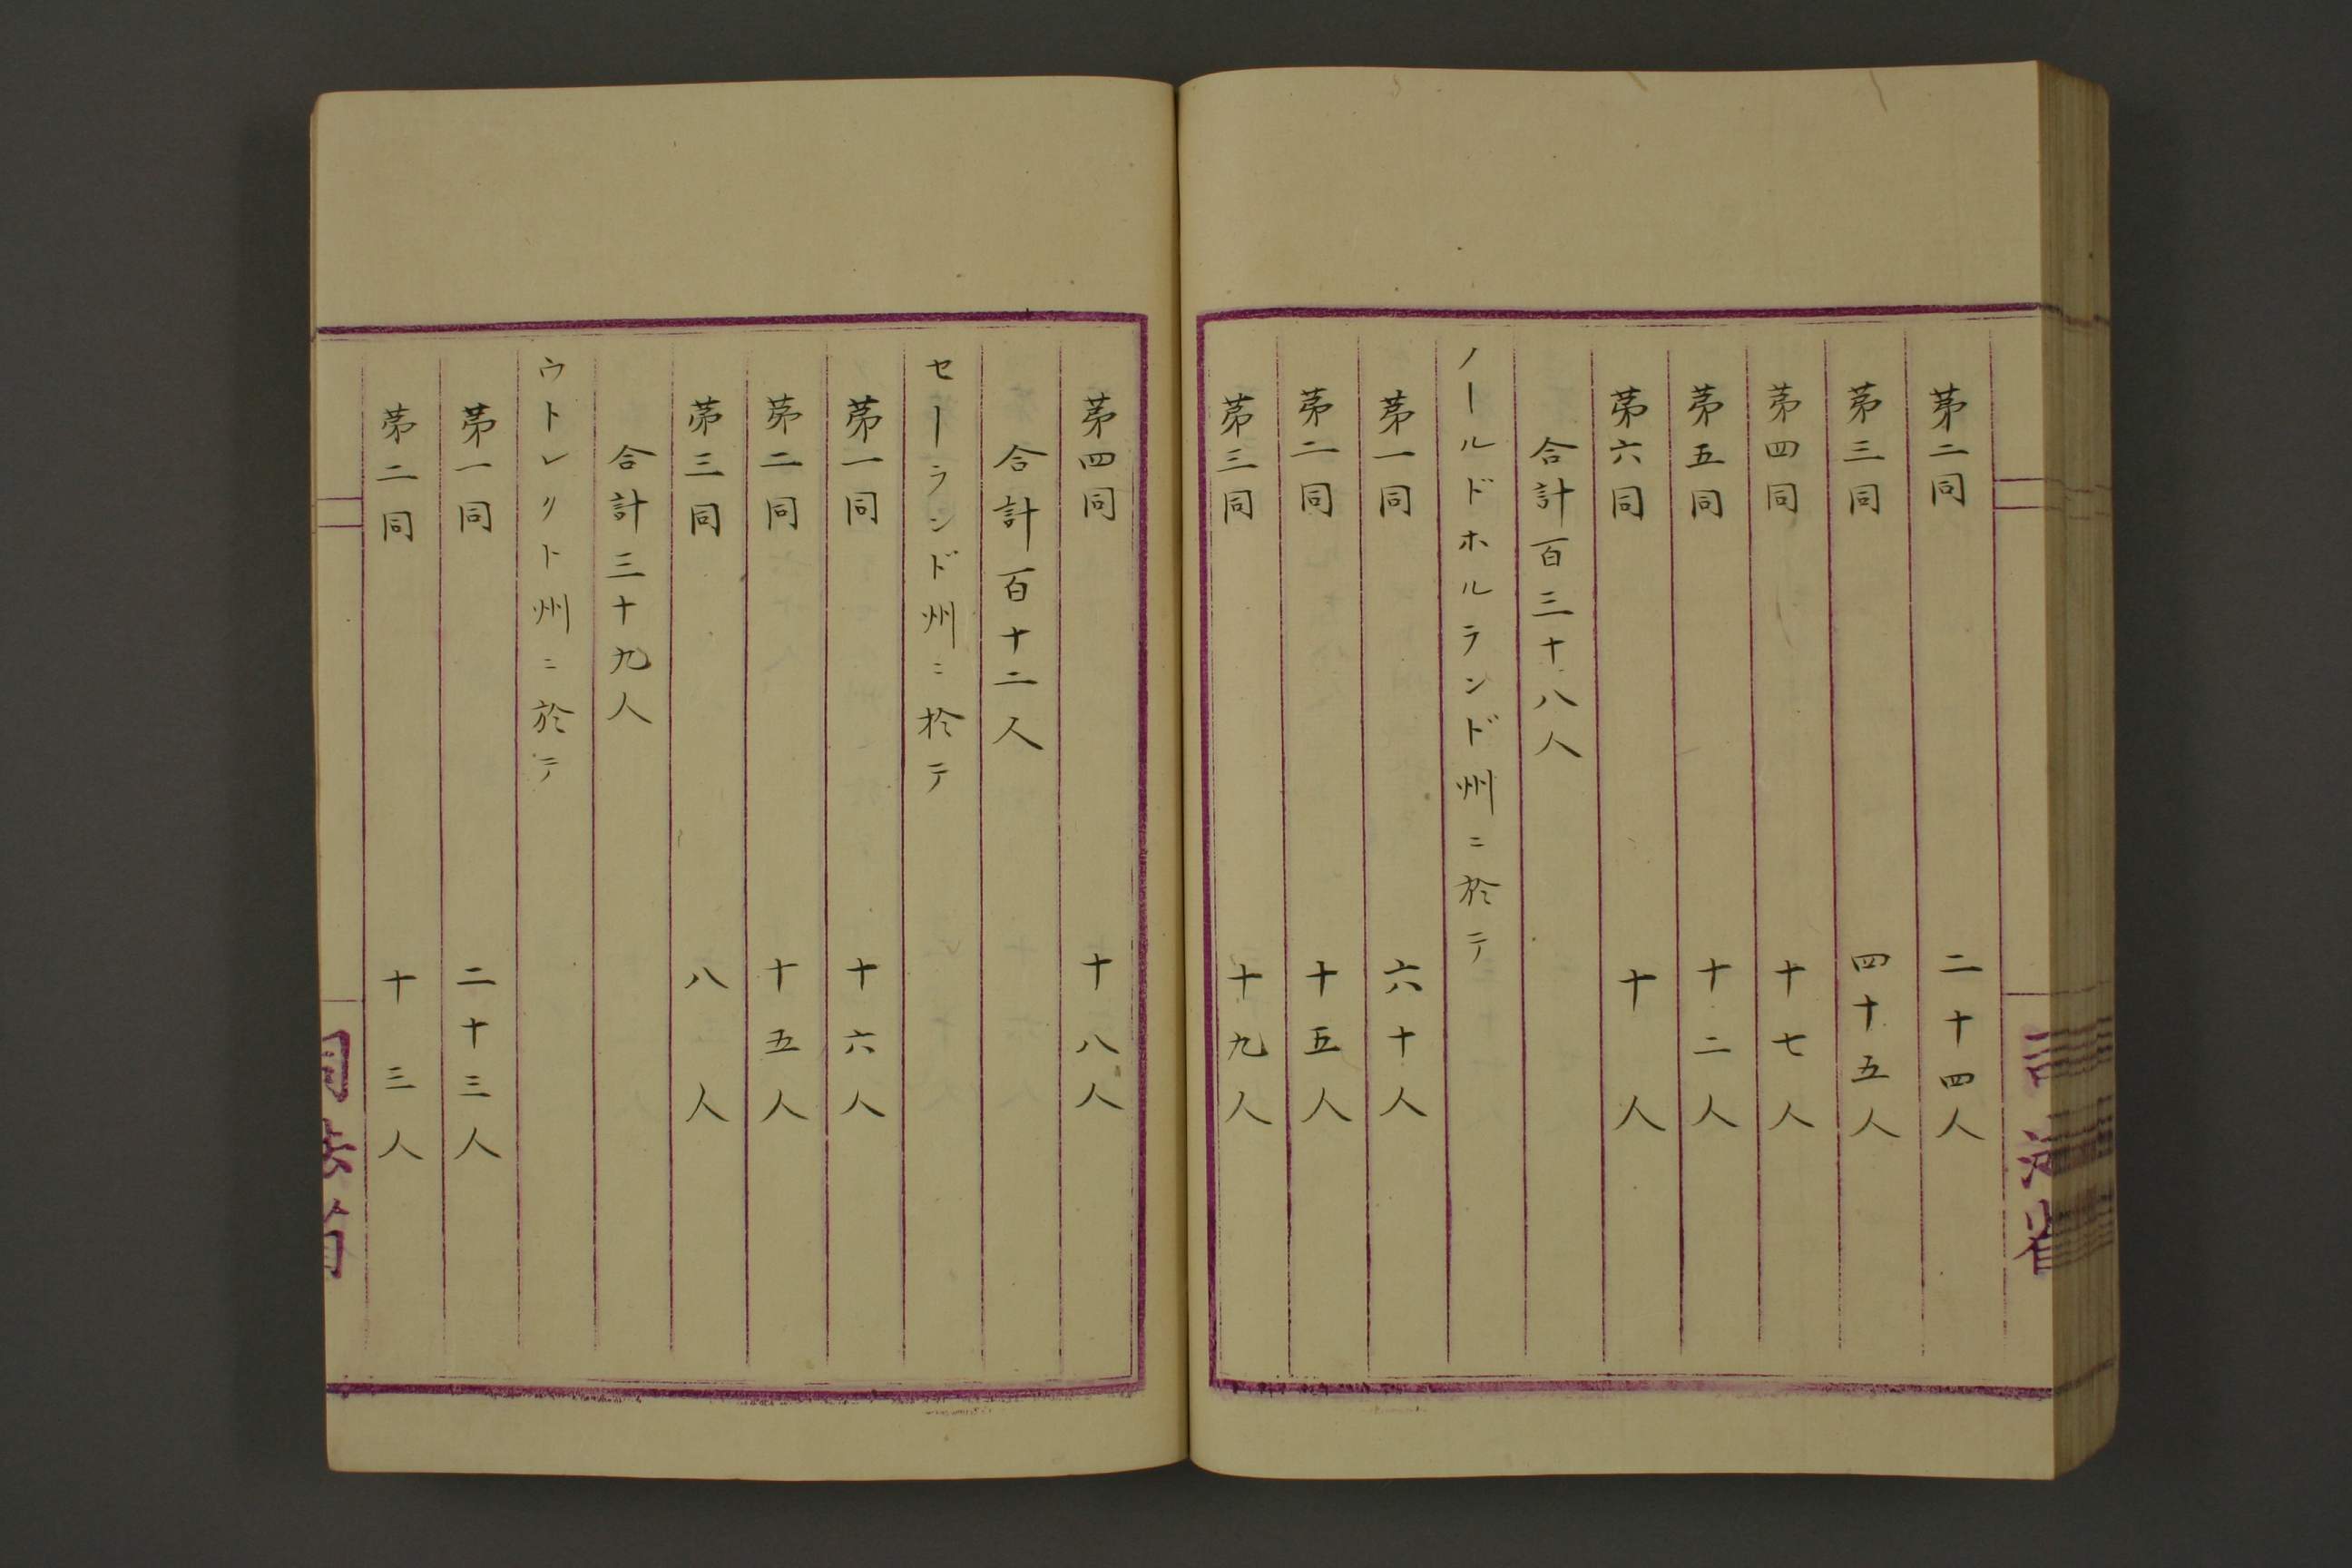 第二同 二十四人
第三同 四十五人
第四同 十七人
第五同 十二人
第六同 十人
合計百三十八人
ノールドホルランド州ニ於テ
第一同 六十人
第二同 十五人
第三同 十九人
司法省
第四同 十八人
合計百十二人
セーランド州ニ於テ
第一同 十六人
第二同 十五人
第三同 八人
合計三十九人
ウトレクト州ニ於テ
第一同 二十三人
第二同 十三人
司法省